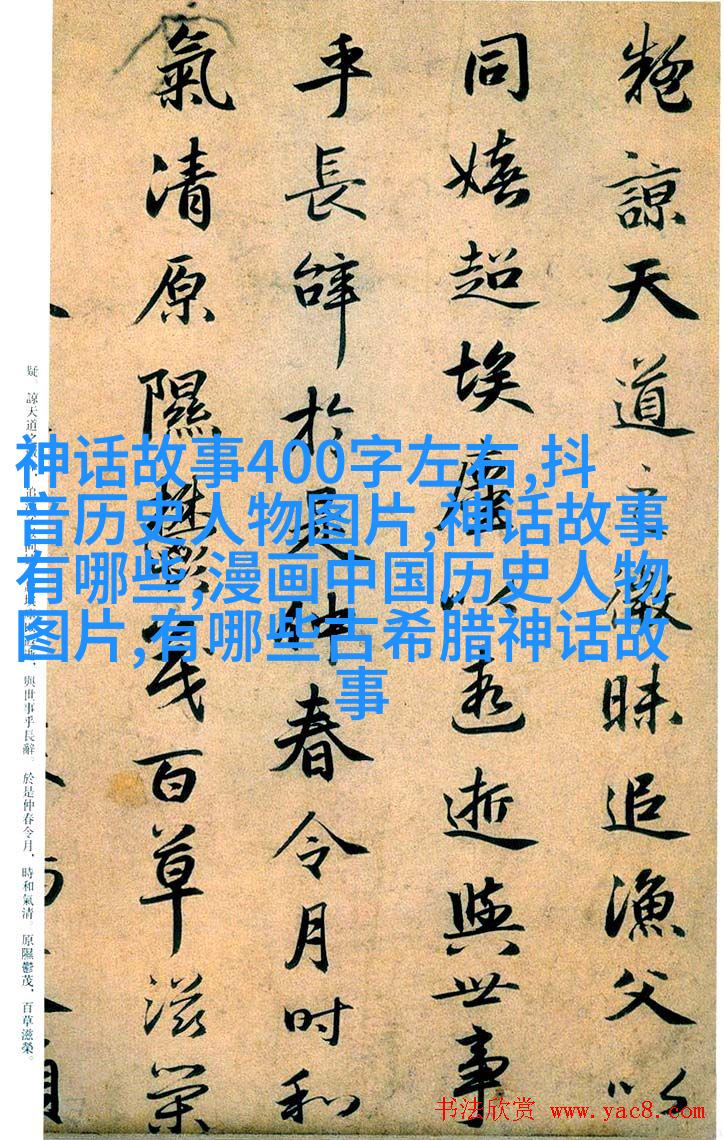 疑諒天道之微昧追漁父以
同嬉超埃塵以遐逝與世事
乎長辭於是仲春令月時和
氣清原隰欝茂百草滋榮
疑。諒天道之
與世事乎長辭。於是仲春令月,時和氣清。原隰鬱茂,百草滋榮。
神话故事400字左右,抖
音历史人物图片,神话故事
有哪些,漫画中国历史人物
图片,有哪些古希腊神话故
事
书法欣赏 www.yac8.com